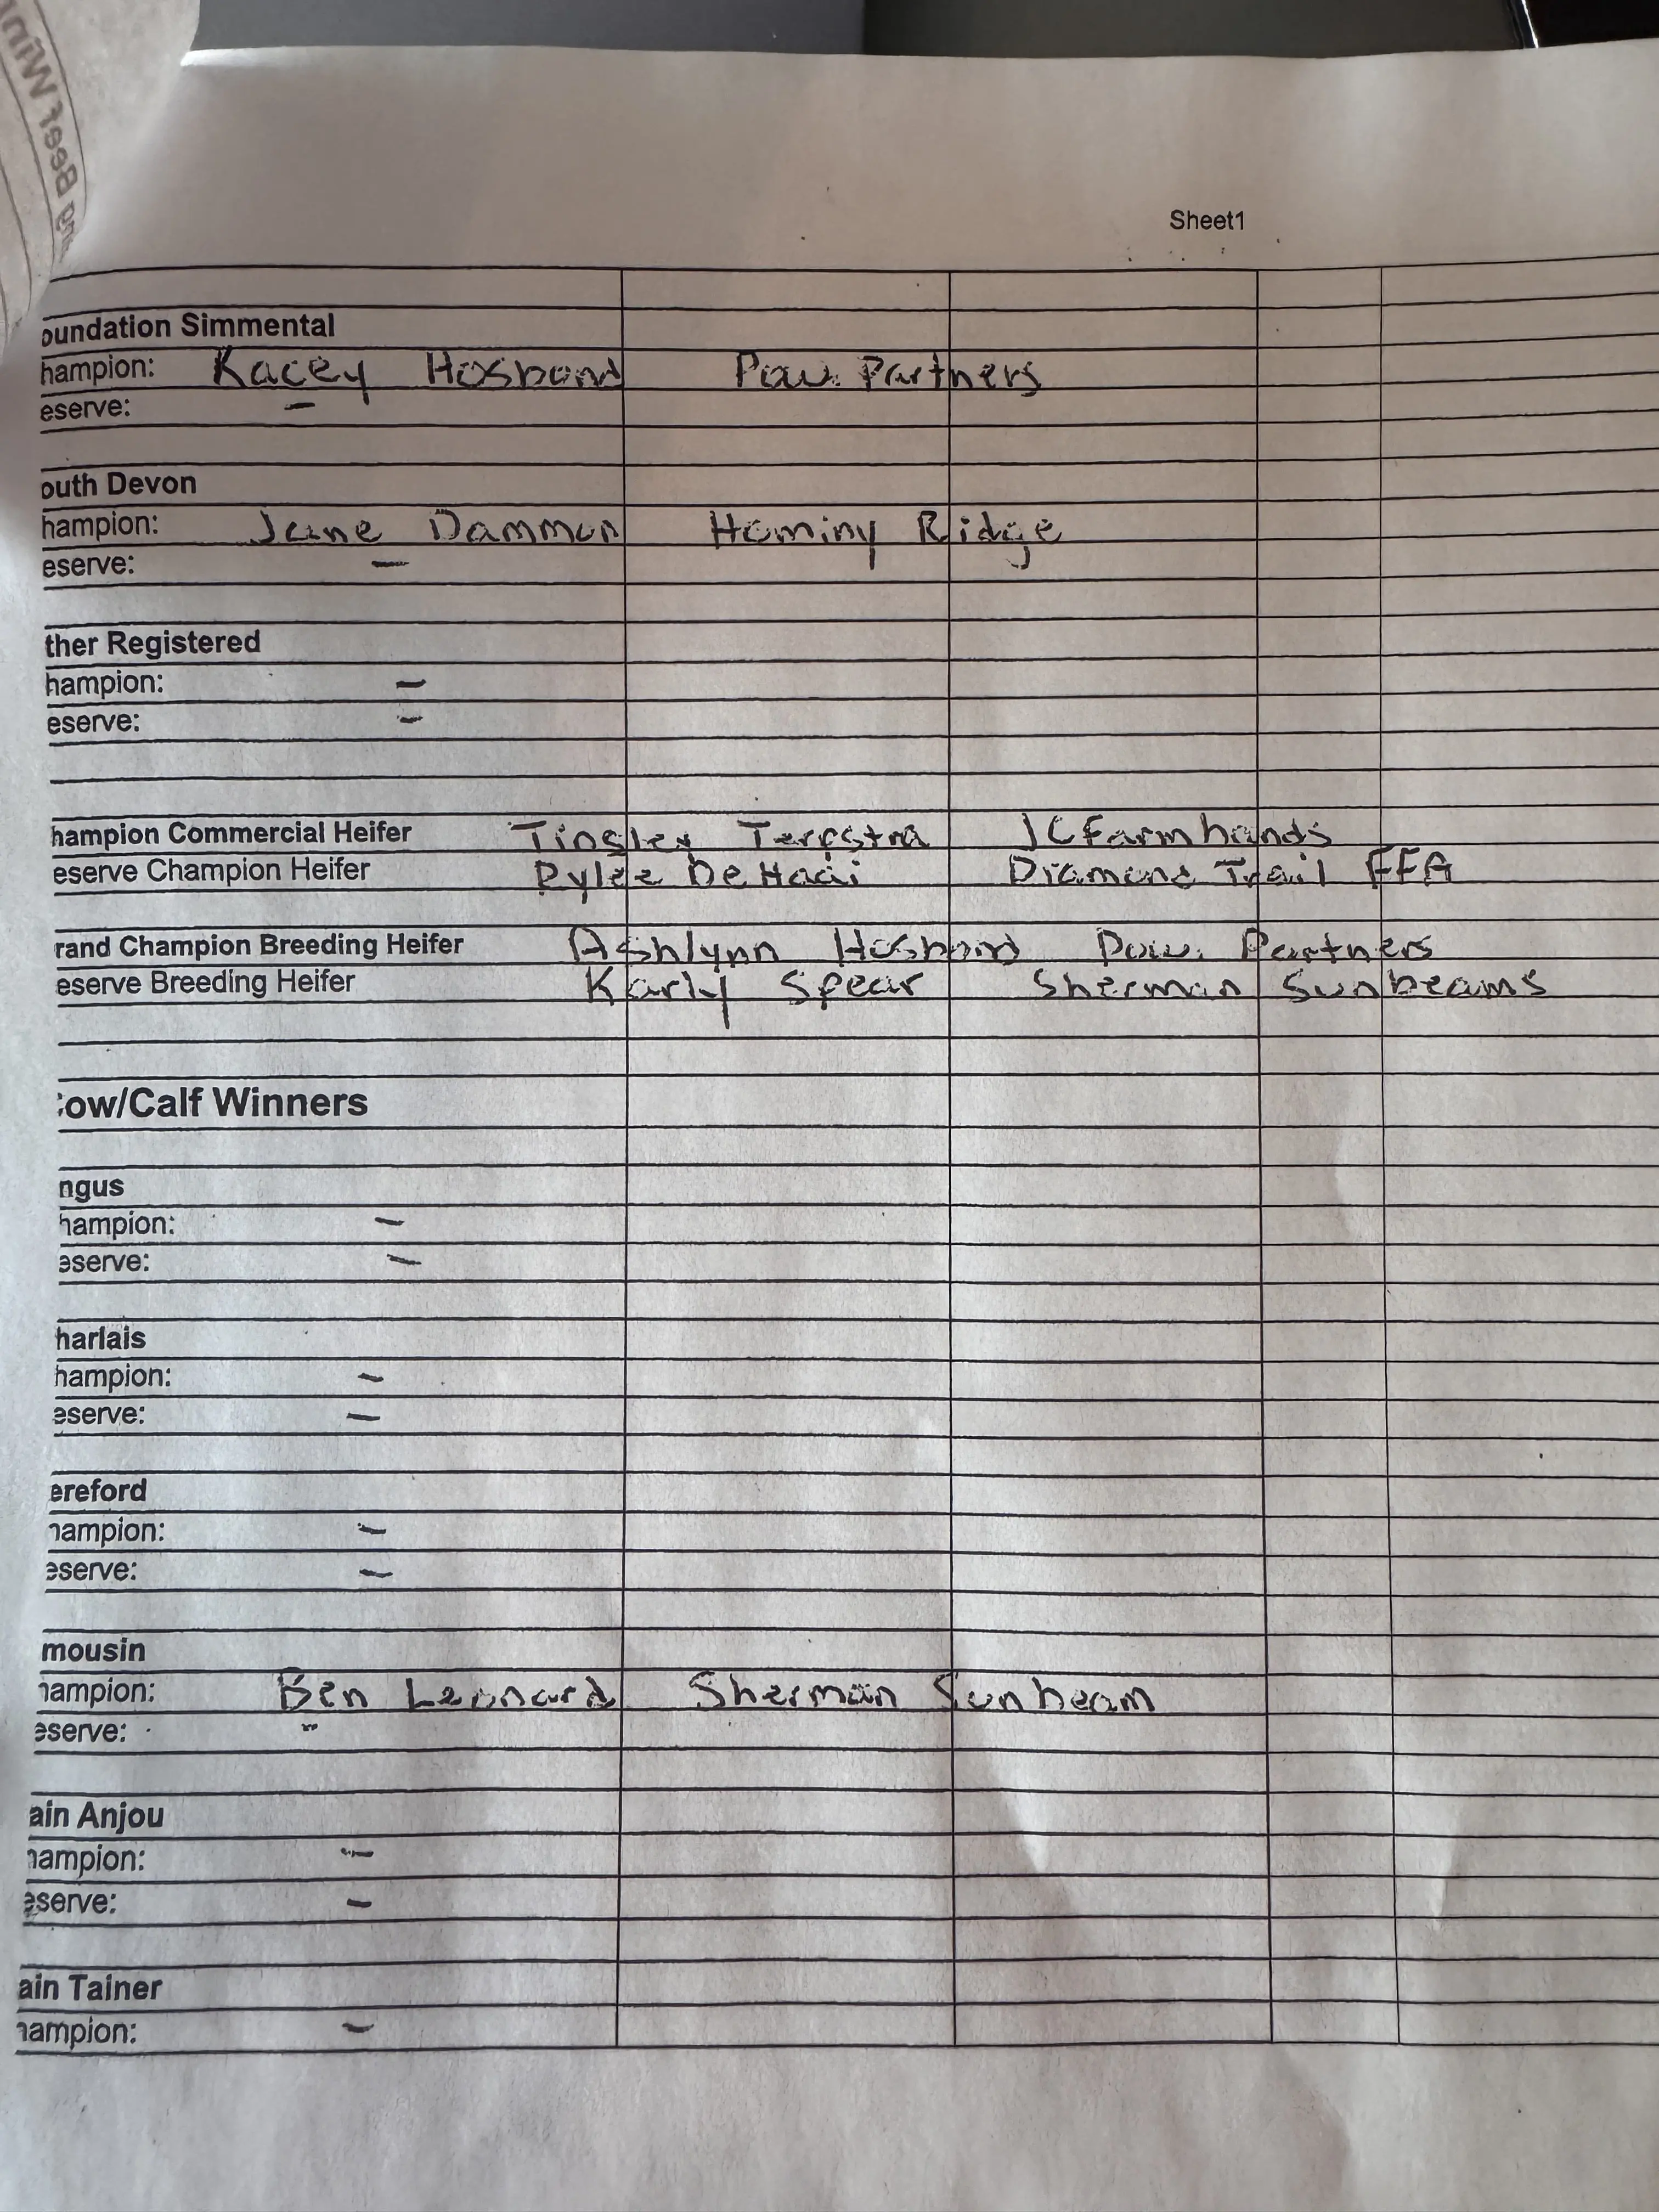 ing Beef Winn
Sheet1
oundation Simmental
hampion: Kacey Hosbond Pow. Partners
eserve: –
outh Devon
hampion: Jane Dammon Hominy Ridge
eserve: –
ther Registered
hampion: –
eserve: –
hampion Commercial Heifer Tinsley Terpstra JC Farmhands
eserve Champion Heifer Rylee DeHaai Diamond Trail FFA
rand Champion Breeding Heifer Ashlynn Hosbond Pow. Partners
eserve Breeding Heifer Karly Spear Sherman Sunbeams
ow/Calf Winners
ngus
hampion: –
eserve: –
harlais
hampion: –
eserve: –
ereford
hampion: –
eserve: –
mousin
hampion: Ben Leonard Sherman Sunbeam
eserve: –
ain Anjou
hampion: –
eserve: –
ain Tainer
hampion: –